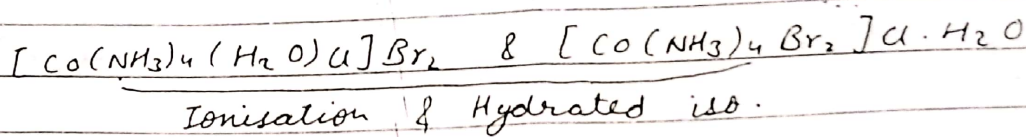 [Co(NH3)4(H2O)Cl]Br2 & [Co(NH3)4Br2]Cl.H2O
Ionisation & Hydrated iso.